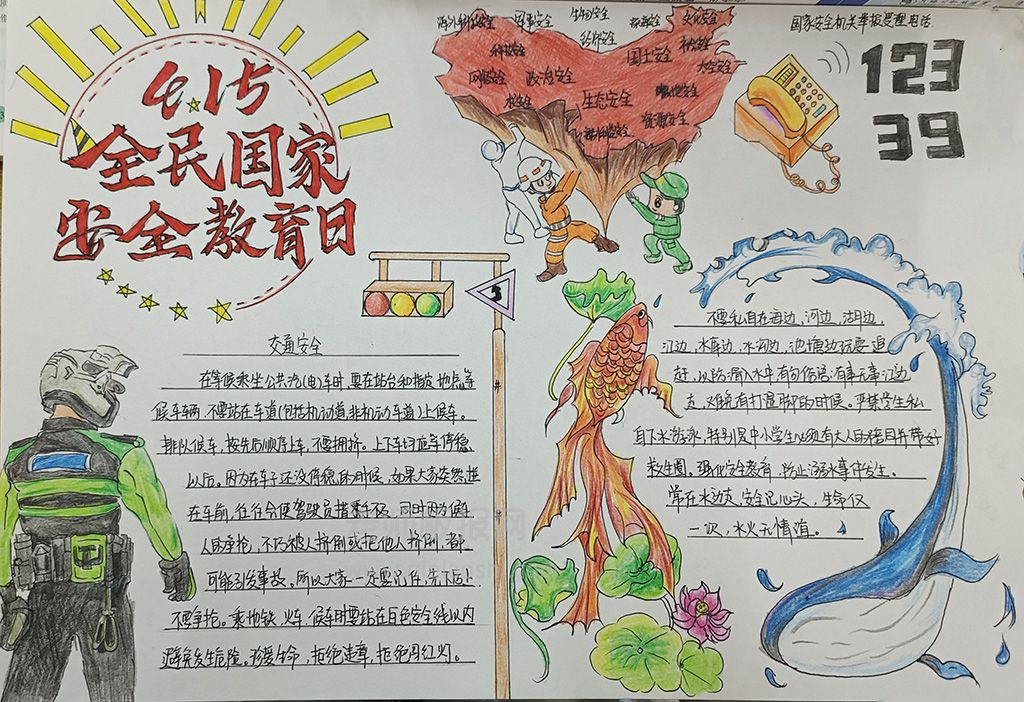 4.15
全民国家
安全教育日
海外利益安全
军事安全
生物安全
核安全
文化安全
科技安全
经济安全
国土安全
社会安全
网络安全
政治安全
太空安全
生态安全
资源安全
国家安全机关举报受理电话
123
39
交通安全
在等候乘坐公共汽(电)车时,要在站台和指定地点等
候车辆,不要站在车道(包括机动道,非机动车道)上候车。
排队候车,按先后顺序上车,不要拥挤。上下车均应等停稳
以后。因为在车子还没停稳的时候,如果大家突然挡
在车前,往往会使驾驶员措手不及,同时因为候车
人的争抢,不仅被人挤倒或把他人挤倒,都
可能引发事故。所以大家一定要记住,先下后上
不要争抢。乘地铁、火车,候车时要站在白色安全线以内
避免发生危险。珍爱生命,拒绝违章,拒绝闯红灯。
不要私自在海边,河边,湖边,
江边,水库边,水沟边,池塘边玩耍追
赶,以防滑入水中有句俗语:有事无事江边
走,难有打湿脚的时候。严禁学生私
自下水游泳,特别是中小学生必须有大人的陪同并带好
救生圈。强化安全教育,防止溺水事件发生。
常在水边走,安全记心头,生命仅
一次,水火无情谊。